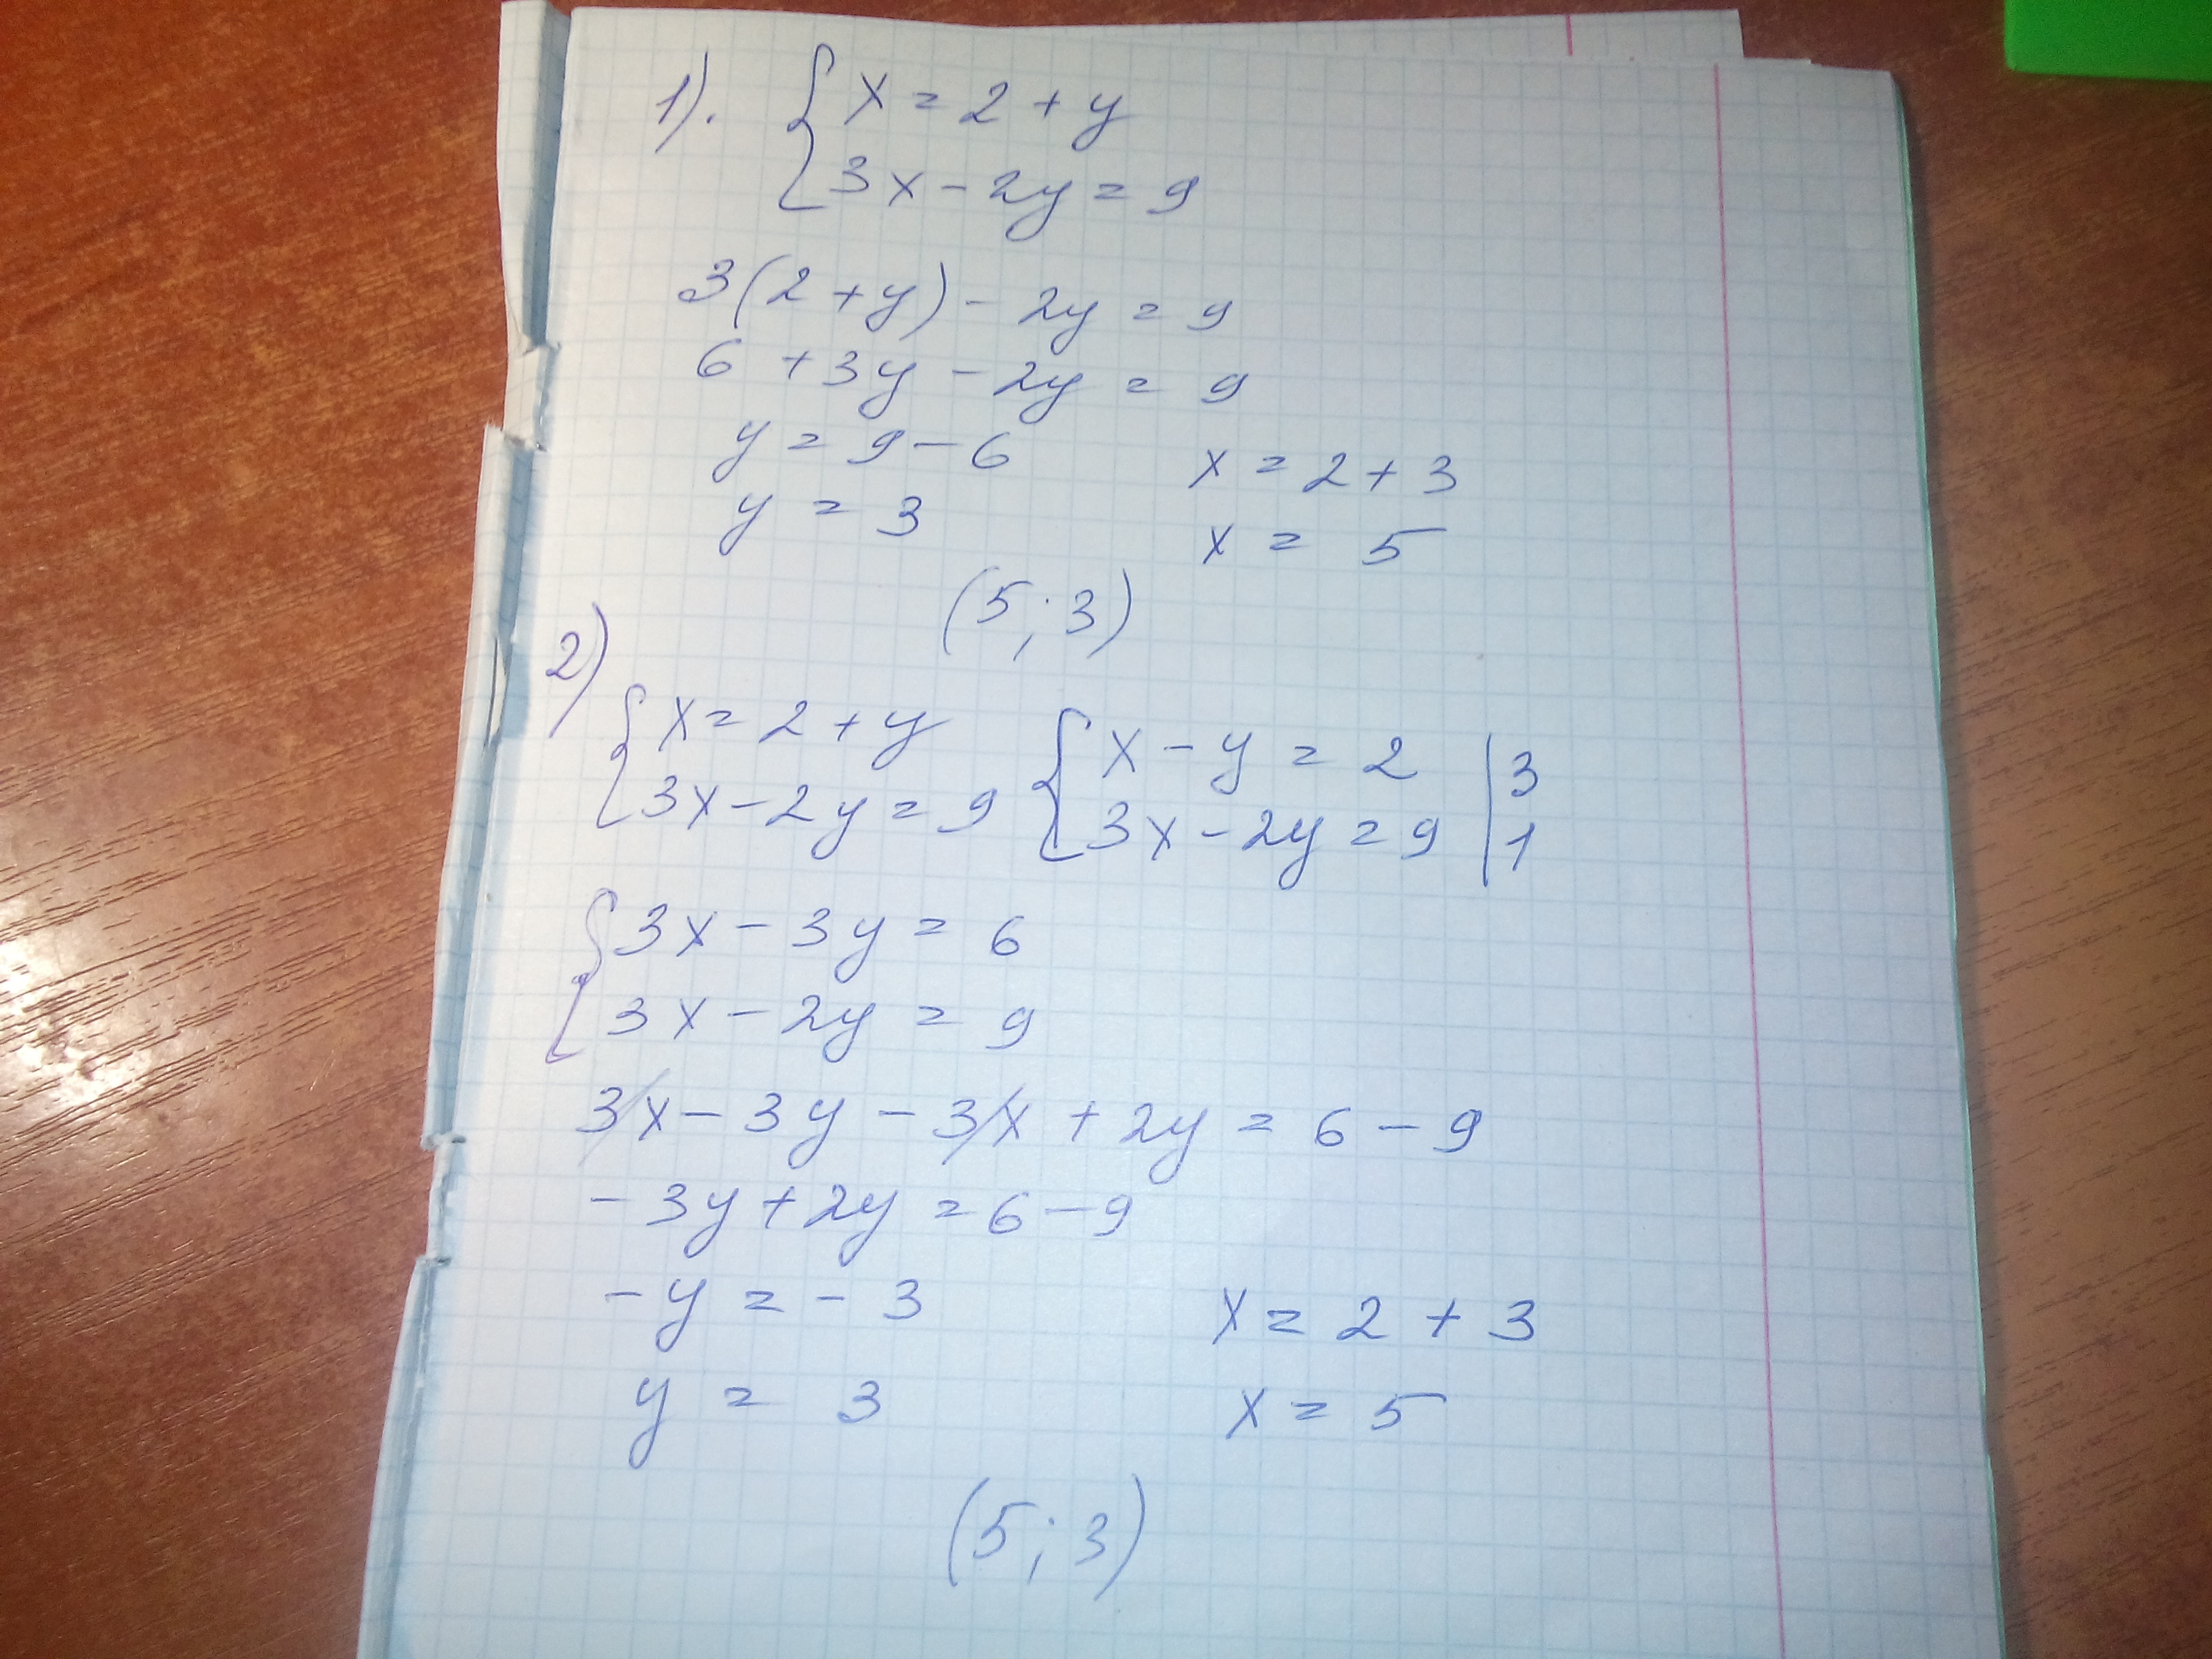 1). { x = 2 + y
3x - 2y = 9
3(2 + y) - 2y = 9
6 + 3y - 2y = 9
y = 9 - 6
y = 3
x = 2 + 3
x = 5
(5; 3)
2)
{ x = 2 + y
3x - 2y = 9
{ x - y = 2 | 3
3x - 2y = 9 | 1
{ 3x - 3y = 6
3x - 2y = 9
3x - 3y - 3x + 2y = 6 - 9
- 3y + 2y = 6 - 9
- y = - 3
y = 3
x = 2 + 3
x = 5
(5; 3)